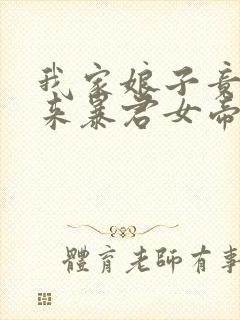 我家娘子竟
来暴君女帝
體育老師有事